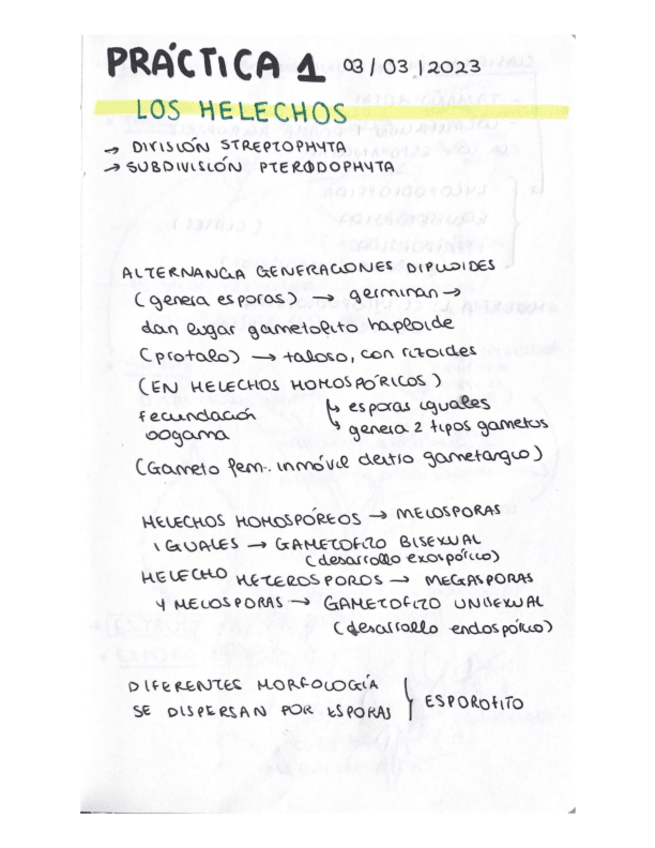 PRÁCTICA 1 03/03/2023
LOS HELECHOS
→ DIVISIÓN STREPTOPHYTA
→ SUBDIVISIÓN PTERODOPHYTA
ALTERNANCIA GENERACIONES DIPLOIDES
(genera esporas) → germinan →
dan lugar gametofito haploide
(protalo) → taloso, con rizoides
(EN HELECHOS HOMOSPÓRICOS)
fecundación ↳ esporas iguales
oogama ↳ genera 2 tipos gametos
(Gameto fem. inmóvil dentro gametangio)
HELECHOS HOMOSPÓREOS → MEIOSPORAS
IGUALES → GAMETOFITO BISEXUAL
(desarrollo exospórico)
HELECHO HETEROSPOROS → MEGASPORAS
Y MEIOSPORAS → GAMETOFITO UNISEXUAL
(desarrollo endospórico)
DIFERENTES MORFOLOGÍA
SE DISPERSAN POR ESPORAS } ESPOROFITO